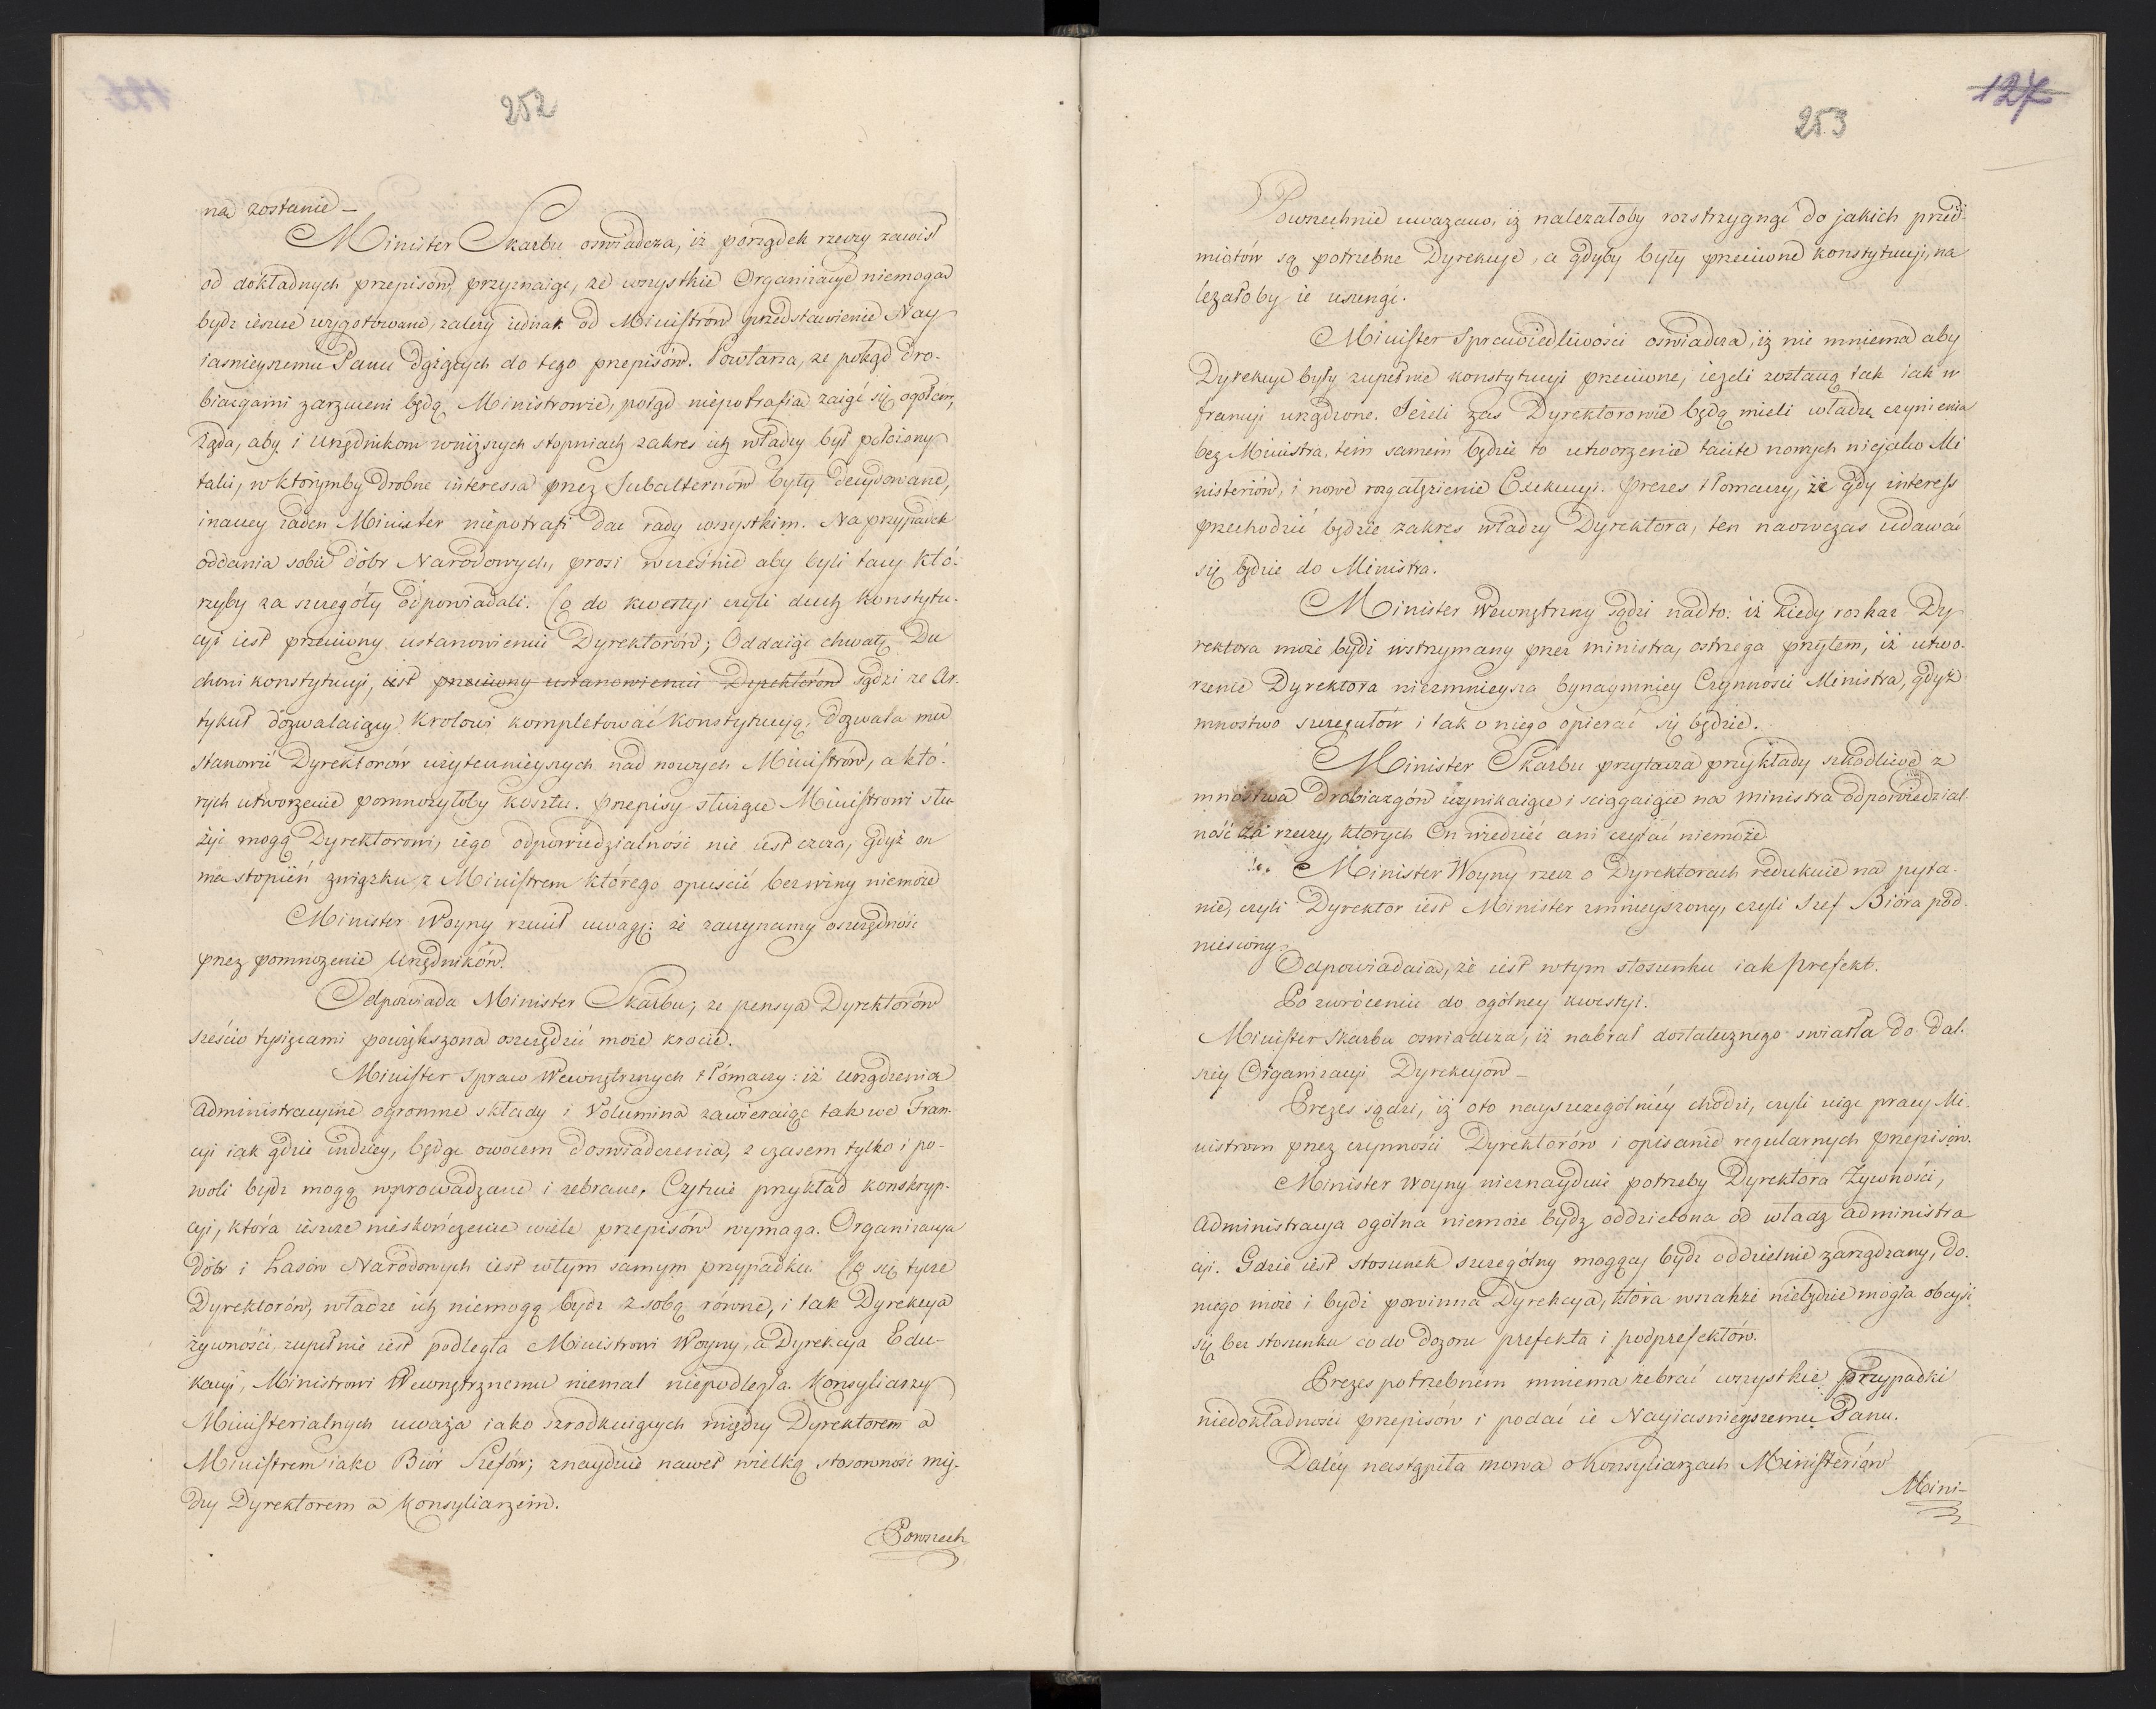 252
na zostanie –
Minister Skarbu oswiadcza, iż porządek rzeczy zawisł
od dokładnych przepisów, przyznaiąc, że wszystkie Organizacye niemogą
bydź ieszcze uzgotowane, zależy iednak od Ministrów przedstawienie Nay
iasnieyszemu Panu dążących do tego przepisów. Powtarza, ze pokąd dro-
biazgami zarzuceni będą Ministrowie, potąd niepotrafią zaiąć się ogółem,
żąda, aby i Urzędnikom wniższych stopniach zakres ich władzy był położony
taki, w którymby drobne interessa przez Subalternów były decydowane,
inaczey żaden Minister niepotrafi dać rady wszystkim. Na przypadek
oddania sobie dóbr Narodowych, prosi wcześnie aby byli tacy któ-
rzyby za szczegóły odpowiadali. Co do kwestyi czyli duch Konstytu-
cyi iest przeciwny ustanowieniu Dyrektorów; Oddaiąc chwałę Du
chowi konstytucyi, iest przeciwny ustanowieniu Dyrektorów sądzi ze Ar-
tykuł dozwalaiący Krolowi kompletować Konstytucyą, dozwala mu
stanowić Dyrektorów użytecznieyszych nad nowych Ministrów, a któ-
rych utworzenie pomnożyłoby kosztu. Przepisy służące Ministrowi słu-
żyć mogą Dyrektorowi, iego odpowiedzialność nie iest czcza, gdyż on
ma stopień związku z Ministrem którego opuścić bez winy niemoże
Minister Woyny rzucił uwagę: że zaczynamy oszczędność
przez pomnożenie Urzędników.
Odpowiada Minister Skarbu; ze pensya Dyrektorów
sześcio tysiącami powiększona oszczędzić może krocie.
Minister Spraw Wewnętrznych tłómaczy: iż urządzenia
administracyine ogromne składy i Volumina zawieraiące tak we Fran-
cyi iak gdzie indziey, będąc owocem doswiadczenia, z czasem tylko i po-
woli bydź mogą wprowadzane i zebrane. Czytnie przykład konskryp-
cyi, która ieszcze nieskończenie wiele przepisów wymaga. Organizacya
dóbr i Lasów Narodowych iest wtym samym przypadku. Co się tycze
Dyrektorów, władze ich niemogą bydź z sobą równe, i tak Dyrekcya
żywności, zupełnie iest podległa Ministrowi Woyny, a Dyrekcya Edu-
kacyi, Ministrowi Wewnętrznemu niemal niepodległa. Konsyliarzy
Ministerialnych uważa iako środkuiących między Dyrektorem a
Ministrem iako Biór Szefów; znayduie nawet wielką stosowność mię-
dzy Dyrektorem a Konsyliarzem.
Powszech
127
253
Powszechnie uwazano, iż należałoby rozstrzygnąć do jakich przed-
miotów są potrzebne Dyrekcye, a gdyby były przeciwne konstytucyi, na
leżałoby ie usunąć.
Minister Sprawiedliwości oswiadcza, iż nie mniema aby
Dyrekcye były zupełnie konstytucyi przeciwne, ieżeli zostaną tak iak w
francyi urządzone. Jeżeli zas Dyrektorowie będą mieli władzę czynienia
bez Ministra, tem samem będzie to utworzenie tacite nowych niejako Mi
nisteriów, i nowe rozgałęzienie Exekucyi. Prezes tłomaczy, że gdy interess
przechodzić będzie zakres władzy Dyrektora, ten naowczas udawać
się będzie do Ministra.
Minister Wewnętrzny sądzi nadto: iż kiedy rozkaz Dy
rektora może bydź wstrzymany przez ministra, ostrzega przytem, iż utwo-
rzenie Dyrektora niezmnieysza bynaymniey Czynności Ministra, gdyż
mnostwo szczegułów i tak o niego opierać się będzie.
Minister Skarbu przytacza przykłady szkodliwe z
mnóstwa drobiazgów wynikaiące i sciągaiące na ministra odpowiedzial-
ność za rzeczy, których On wiedzieć ani czytać niemoże.
Minister Woyny rzecz o Dyrektorach redukuie na pyta-
nie, czyli Dyrektor iest Minister zmnieyszony, czyli Szef Bióra pod-
niesiony.
Odpowiadaią, że iest wtym stosunku iak Prefekt.
Po zwróceniu do ogólney kwestyi.
Minister Skarbu oswiadcza, iż nabrał dostatecznego swiatła do dal-
szey Organizacyi Dyrekcyów –
Prezes sądzi, iż oto nayszczególniéy chodzi, czyli uiąć pracy Mi-
nistrom przez czynności Dyrektorów i opisanie regularnych przepisów.
Minister Woyny nieznayduie potrzeby Dyrektora Żywności,
Administracya ogólna niemoże bydź oddzielona od władz administra
cyi. Gdzie iest stosunek szczególny mogący bydź oddzielnie zarządzany, do
niego może i bydź powinna Dyrekcya, która wszakże niebędzie mogła obeyść
się bez stosunku co do dozoru prefekta i podprefektów.
Prezes potrzebnem mniema zebrać wszystkie przypadki
niedokładności przepisów i podać ie Nayiasnieyszemu Panu.
Daléy nastąpiła mowa o Konsyliarzach Ministeriów
Mini-